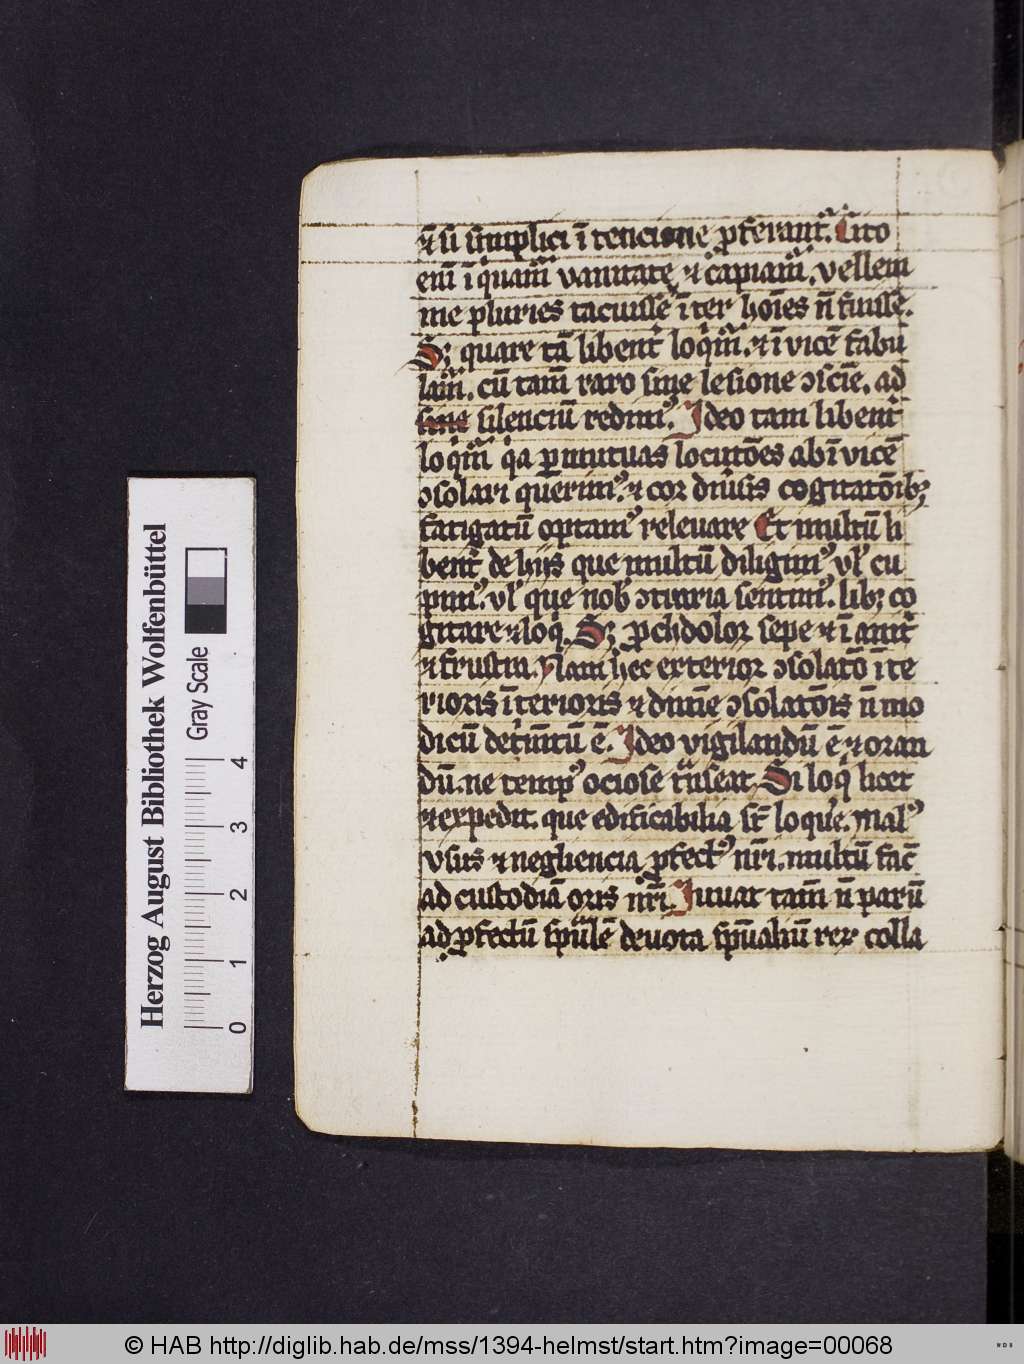 et̄ si simplici ītencione ꝓferant᷑. Cito
em̄ īquinam᷑ vanitate ⁊ capiam᷑. vellem
me pluries tacuisse ⁊ īter hoīes nō fuisse.
Sꝫ quare tā libent᷑ loqim᷑. ⁊ īvicē fabu
lam᷑. cū tam̄ raro sine lesione ↄscīe. ad
sine silenciū redimꝰ. Ideo tam libent᷑
loqim᷑ qa ꝑ mutuas locutōes abīvicē
ↄsolari querimꝰ. ⁊ cor diu᷑sis cogitatōibꝫ
fatigatū optamꝰ releuare Et multū li
bent᷑ de hijs que multū diligimꝰ vl̓ cu
pimꝰ. vl̓ que nob̓ ↄtraria sentimꝰ. libꝫ co
gitare ⁊ loqͥ. Sꝫ ꝓch dolor sepe ⁊ īanit᷑
⁊ frustra. Nam hec exterior ↄsolatō īte
rioris īterioris ⁊ diuīe ↄsolatōis nō mo
dicū det᷑mētū ē. Ideo vigilandū ē ⁊ oran
dū. ne tempꝰ ociose trͣnseat. Si loqͥ licet
⁊ expedit. que edificabilia sūt loqu᷑e. Malꝰ
vsus ⁊ negliencia ꝓfectꝰ nr̄i. multū fac̄
ad custodiā oris nr̄i. Iuuat tam̄ nō parū
ad ꝓfectū spūalē deuota spūaliū rer colla
Herzog August Bibliothek Wolfenbüttel
Gray Scale
0 1 2 3 4
© HAB http://diglib.hab.de/mss/1394-helmst/start.htm?image=00068